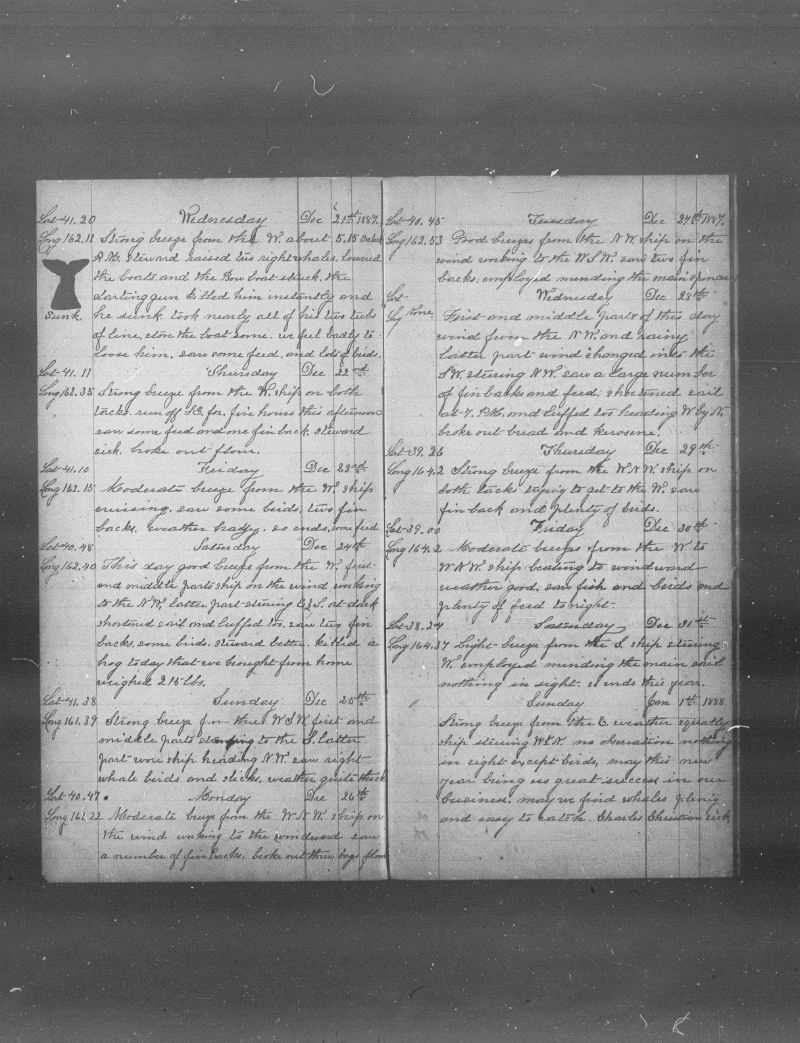 Lat 41.20 Wednesday Dec 21st 1887.
Long 162.11 Strong breeze from the W. about 5.15 Oclock
A.M. Steward raised two right whales, lowered
the boats, and the Bow boat struck. the
darting gun killed him instantly and
Sunk. he sunk. took nearly all of his two tubs
of line, stove the boat some. we feel badly to
loose him, saw some feed, and lots of birds.
Lat 41.11 Thursday Dec 22nd
Long 162.35 Strong breeze from the W. ship on both
tacks. run off S.E. for, five hours this afternoon
saw some feed and one fin back. Steward
sick. broke out flour.
Lat 41.10 Friday Dec 23rd
Long 162.15 Moderate breeze from the W. ship
cruising. saw some birds. two fin
backs. weather hazy. so ends. some feed
Lat 40.48 Saturday Dec 24th
Long 162.40 This day good breeze from the W. first
and middle parts ship on the wind working
to the N.W. latter part steering E & S. at dark
shortened sail and luffed too. saw two fin
backs. some birds. steward better. killed a
hog today that we bought from home
weighed 215 lbs.
Lat 41.38 Sunday Dec 25th
Long 161.39 Strong breeze from the W.S.W. first and
middle parts to the S. latter
part wore ship heading N.W. saw right
whale birds and slicks. weather quite thick
Lat 40.47 Monday Dec 26th
Long 161.22 Moderate breeze from the W.N.W. ship on
the wind working to the windward saw
a number of fin backs. broke out three bags flour
Lat 40.45 Tuesday Dec 27th 1887.
Long 162.53 Good breeze from the N.W. ship on the
wind working to the W.S.W. saw two fin
backs. employed mending the main spencer
Lat Wednesday Dec 28th
Long None First and middle parts of this day
wind from the N.W. and rainy
latter part wind changed into the
S.W. steering N.W. saw a large number
of fin backs and feed. shortened sail
at 7. P.M. and luffed too heading W by N.
broke out bread and kerosene.
Lat 39.26 Thursday Dec 29th
Long 164.2 Strong breeze from the W.N.W. ship on
both tacks trying to get to the W. saw
fin back and plenty of birds.
Lat 39.00 Friday Dec 30th
Long 164.2 Moderate breezes from the W. to
W.N.W. ship beating to windward
weather good. saw fish and birds and
plenty of feed tonight.
Lat 38.24 Saturday Dec 31st
Long 164.37 Light breeze from the S. ship steering
W. employed mending the main sail
nothing in sight. so ends this year.
Sunday Jan 1st 1888.
Strong breeze from the E. weather squally
ship steering no obseration nothing
in sight except birds, may this new
year bring us great success in our
business. may we find whales plenty
and easy to catch. Charles Christian sick